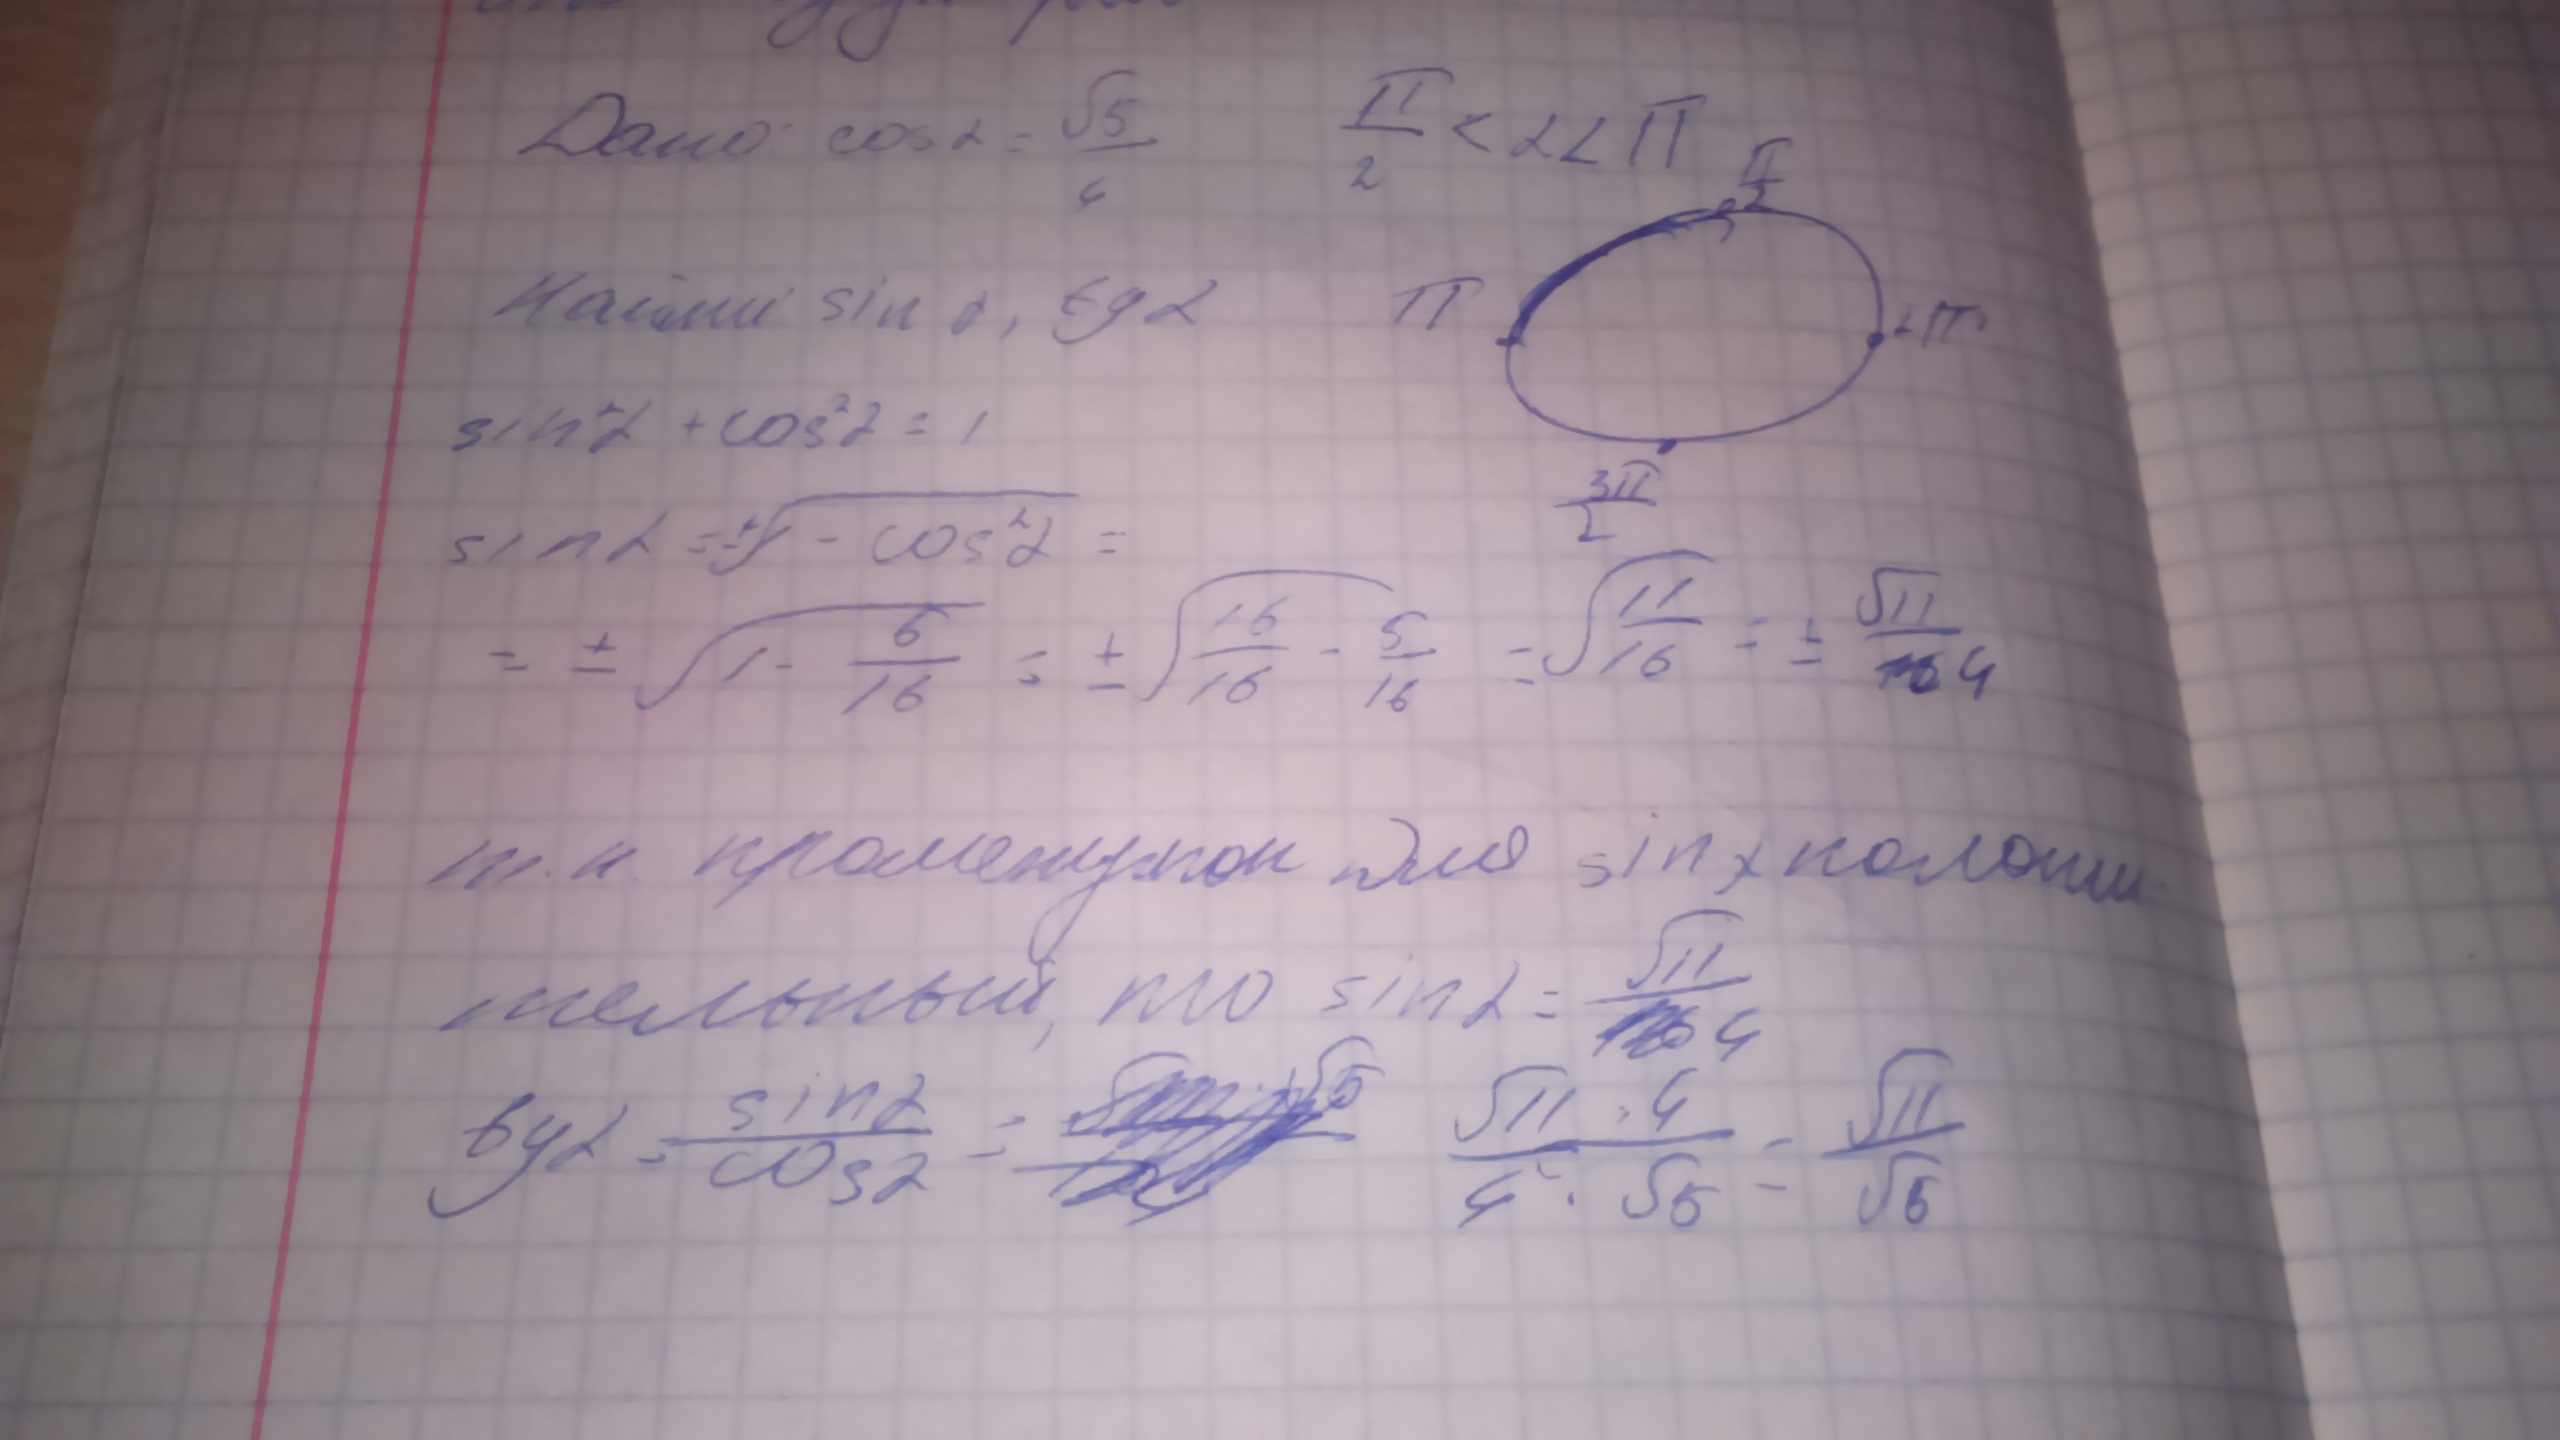 Дано: cos α = √5/4 π/2 < α < π
π/2
Найти sin α, tg α
π 2π
sin²α + cos²α = 1
3π/2
sin α = ±√1 - cos²α =
= ±√1 - 5/16 = ±√16/16 - 5/16 = √11/16 = ± √11/4
т.к. промежуток для sin x положи
тельный, то sin α = √11/4
tg α = sin α/cos α = √11 · 4/4 · √5 = √11/√5